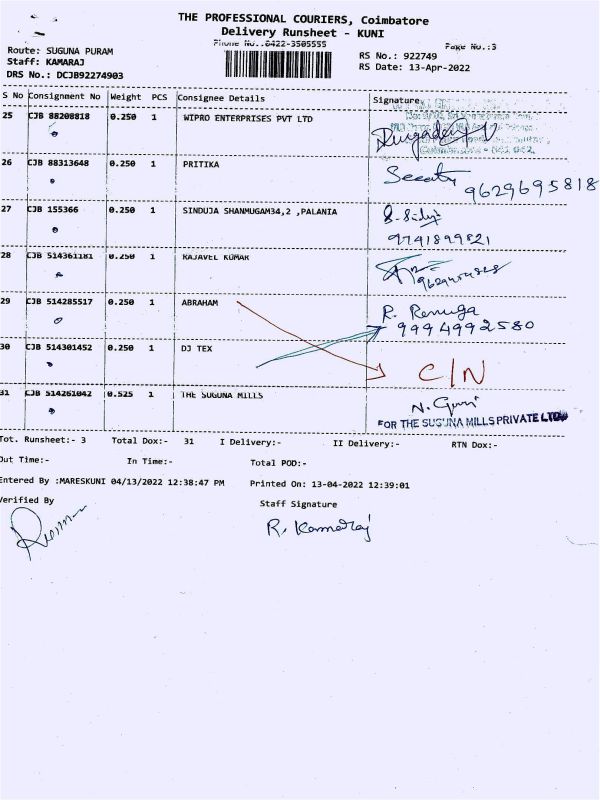 THE PROFESSIONAL COURIERS, Coimbatore
Delivery Runsheet - KUNI
Phone No..0422-3505555
Page No.:3
Route: SUGUNA PURAM
Staff: KAMARAJ
DRS No.: DCJB92274903
RS No.: 922749
RS Date: 13-Apr-2022
S No Consignment No Weight PCS Consignee Details Signature
25 CJB 88208818 0.250 1 WIPRO ENTERPRISES PVT LTD
26 CJB 88313648 0.250 1 PRITIKA
9629695818
27 CJB 155366 0.250 1 SINDUJA SHANMUGAM34,2 ,PALANIA
9741899821
28 CJB 514361181 0.250 1 RAJAVEL KUMAR
29 CJB 514285517 0.250 1 ABRAHAM R. Renuga
9994992580
30 CJB 514301452 0.250 1 DJ TEX C/N
31 CJB 514261042 0.525 1 THE SUGUNA MILLS
FOR THE SUGUNA MILLS PRIVATE LTD
Tot. Runsheet:- 3 Total Dox:- 31 I Delivery:- II Delivery:- RTN Dox:-
Out Time:- In Time:- Total POD:-
Entered By :MARESKUNI 04/13/2022 12:38:47 PM Printed On: 13-04-2022 12:39:01
Verified By Staff Signature
R. Kamaraj